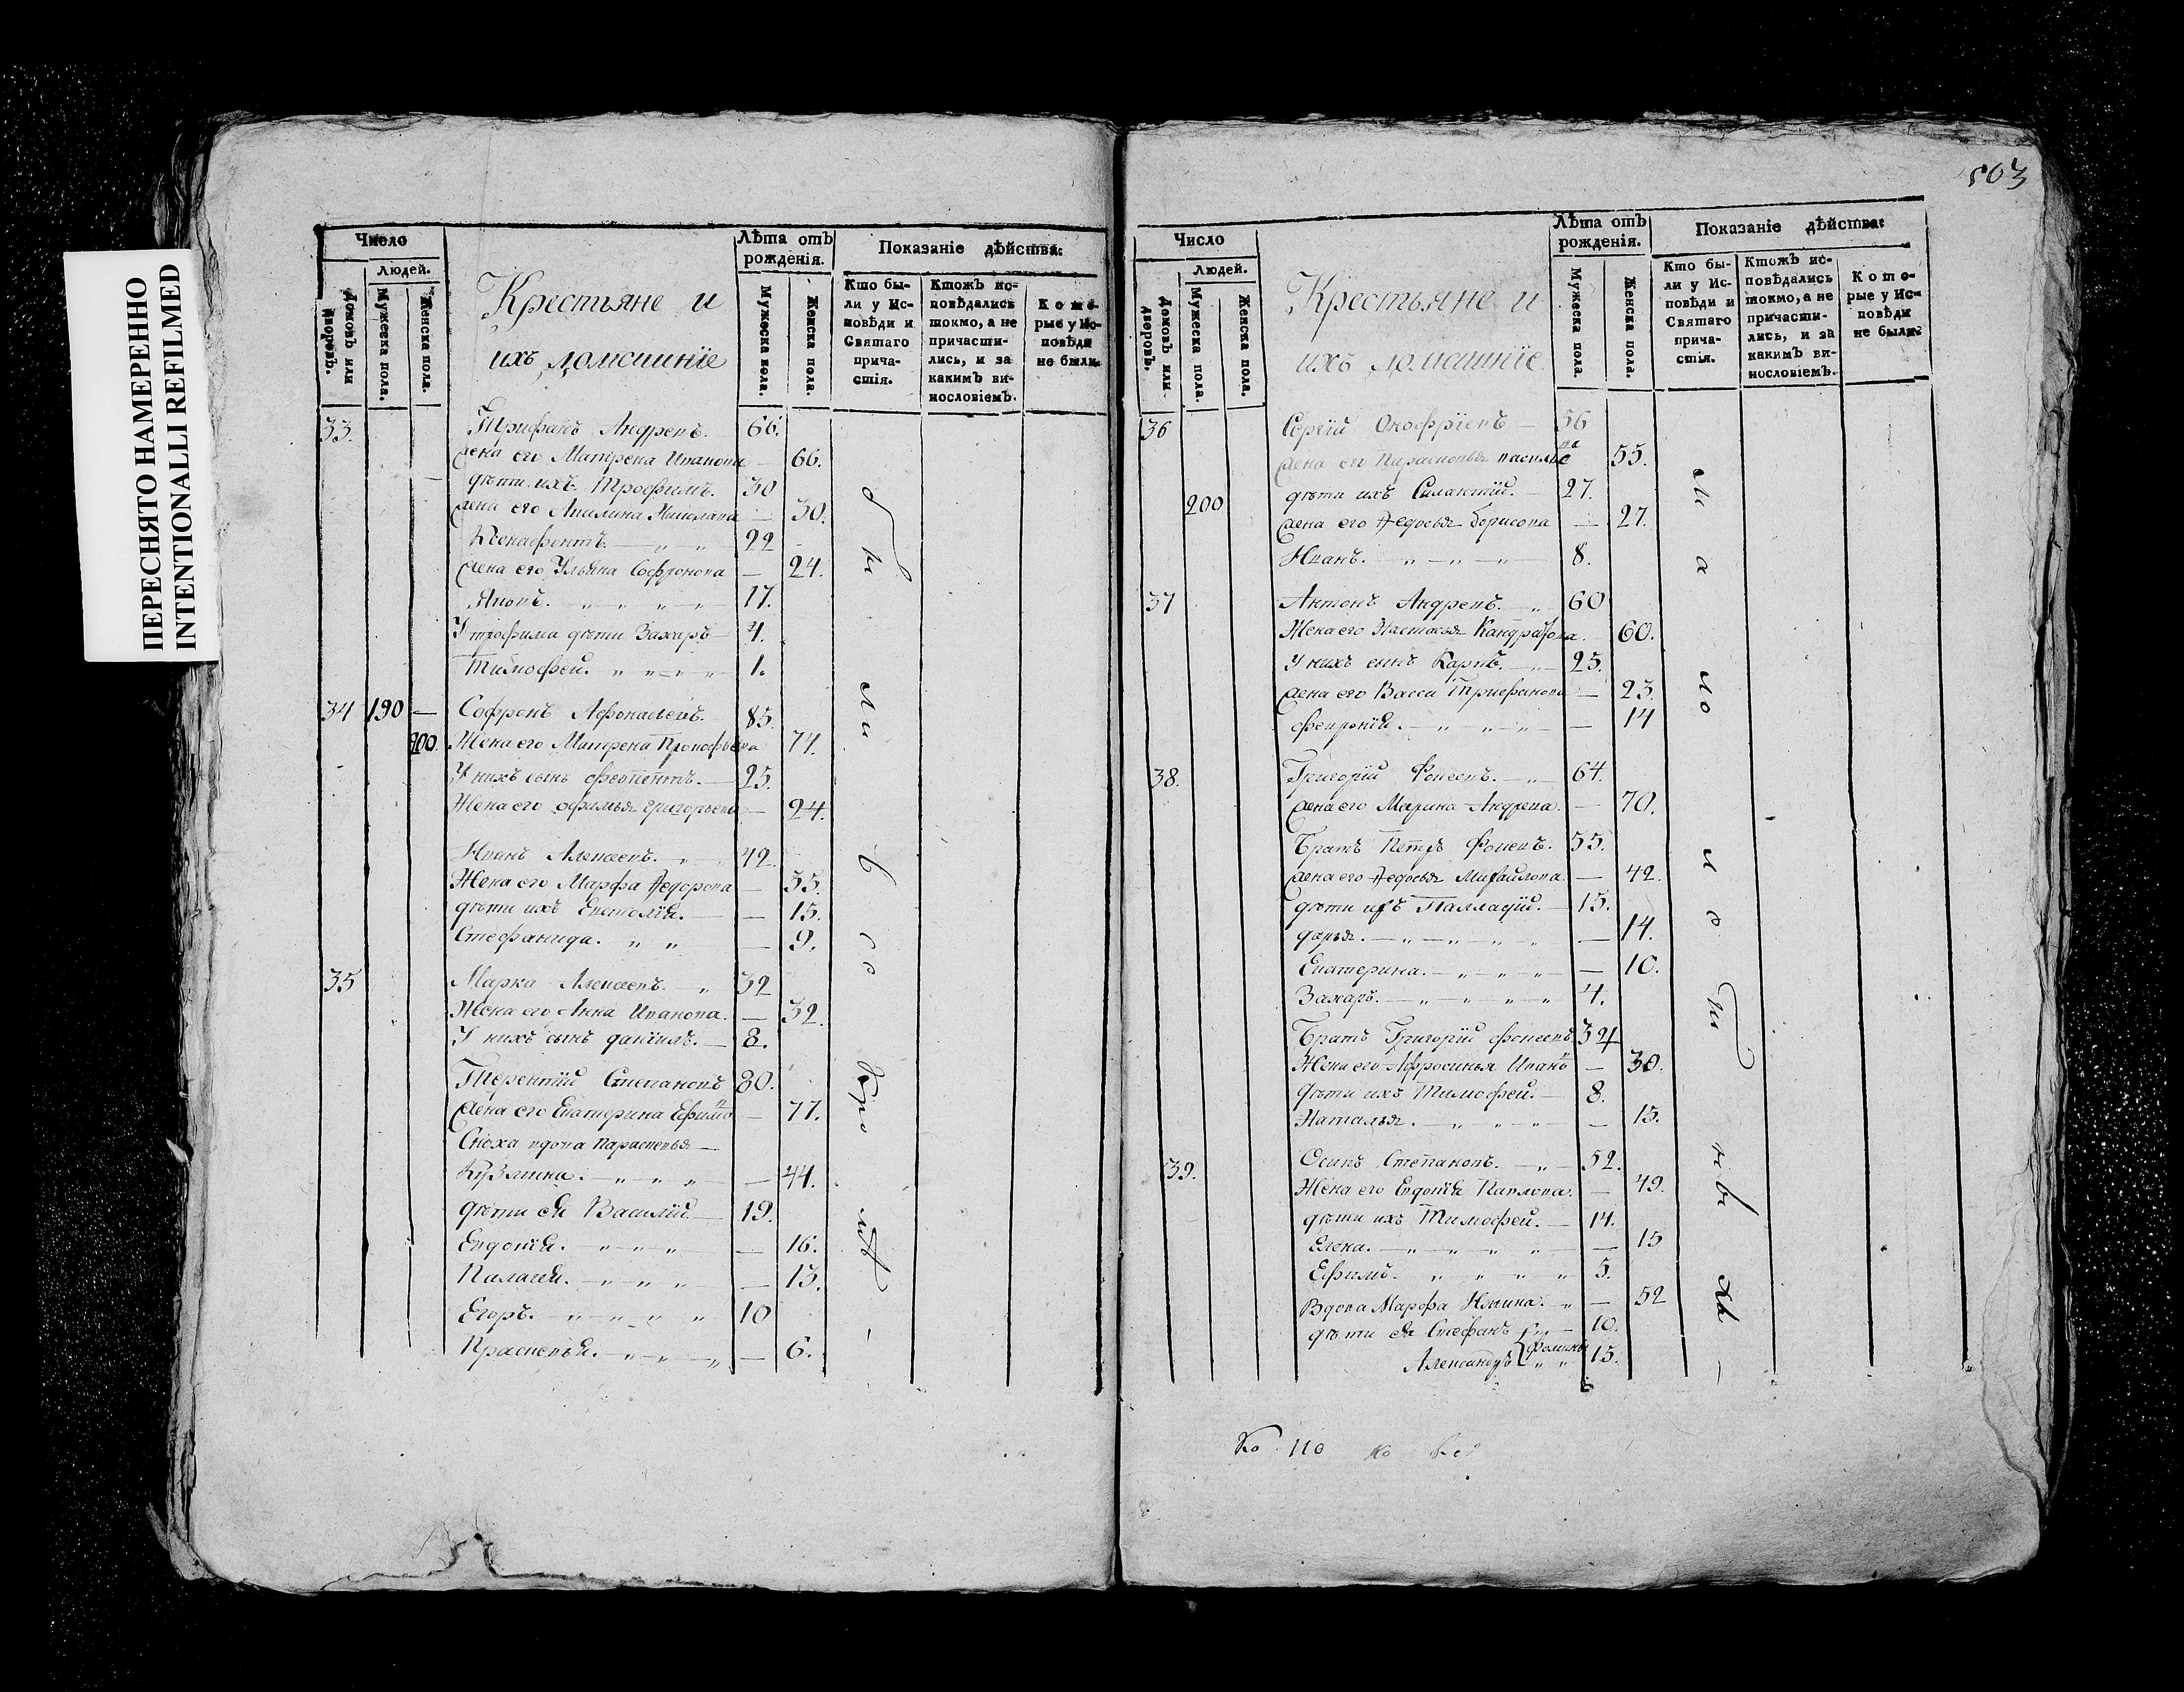 ПЕРЕСНЯТО НАМЕРЕННО
INTENTIONALLI REFILMED
Число
Людей.
Домовъ или дворовъ.
Мужеска пола.
Женска пола.
Крестьяне и
ихъ домашнїе
Лѣта отъ рожденія.
Мужеска пола.
Женска пола.
Показаніе дѣйства:
Кто бы-
ли у Ис-
повѣди и
Святаго
прича-
стія.
Ктожъ ис-
повѣдались
токмо, а не
причасти-
лись, и за
какимъ ви-
нословіемъ.
Кото-
рые у Ис-
повѣди
не были.
33. Трифанъ Андреевъ. 66.
Жена его Матрена Иванова — 66.
дѣти ихъ Трофимъ. 30
Жена его Акилина Николаева — 30.
Ксенофонтъ. 22
Жена его Ульяна Софронова — 24.
Яковъ. 17.
У трофима дѣти Захаръ 4.
Тимофей. 1.
34 190 — Софронъ Афонасьевъ. 85.
200. Жена его Матрена Прокофьева 74.
У нихъ сынъ Феопентъ. 25.
Жена его офимья григорьева — 24.
Иванъ Алексеевъ. 42.
Жена его Марфа Федорова — 35.
дѣти ихъ Епистолїя. — 15.
Стефанида. — 9.
35 Марко Алексеевъ. 32
Жена его Анна Иванова. — 32.
У нихъ сынъ данїилъ. 8.
Терентїй Степановъ 80.
Жена его Екатерина Ефимова — 77.
Сноха вдова Парасковья —
Кузмина. — 44.
дѣти ея Василїй 19.
Евдокїя. — 16.
Палагея. — 13.
Егоръ. 10
Прасковья. — 6.
были у исповѣди
503
Число
Людей.
Домовъ или дворовъ.
Мужеска пола.
Женска пола.
Крестьяне и
ихъ домашнїе
Лѣта отъ рожденія.
Мужеска пола.
Женска пола.
Показаніе дѣйства:
Кто бы-
ли у Ис-
повѣди и
Святаго
прича-
стія.
Ктожъ ис-
повѣдались
токмо, а не
причасти-
лись, и за
какимъ ви-
нословіемъ.
Кото-
рые у Ис-
повѣди
не были.
36 Сергїй Онофрїевъ — 56
Жена его Парасковья васильева 55.
200 дѣти ихъ Силантїй. — 27.
Жена его Федосья борисова — 27.
Иванъ. 8.
37 Антонъ Андреевъ. 60
Жена его Настасья Кандратова. — 60.
У нихъ сынъ Карпъ. 25.
Жена его Васса Трифанова — 23.
феврония. — 14
38. Григорїй Фокеевъ. 64.
Жена его Марина Андреева. — 70.
Братъ Петръ Фокеевъ. 55.
Жена его Федосья Михайлова — 42.
дѣти ихъ Палладїй. 15.
дарья. — 14.
Екатерина. — 10.
Захаръ. 4.
Братъ Григорїй фокеевъ 34
Жена его Афросинья Иванова — 30.
дѣти ихъ Тимофей. 8.
Наталья. — 15.
39. Осипъ Степановъ. 52.
Жена его Евдокїя Павлова. — 49.
дѣти ихъ Тимофей. 14.
Елена. — 15
Ефимъ. 5.
Вдова Марфа Ильина. — 52
дѣти ея Стефанъ 10.
Александръ Фомины 15.